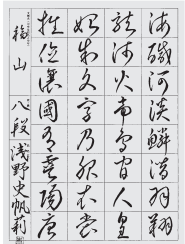 海鹹河淡鱗潛羽翔
龍師火帝鳥官人皇
始制文字乃服衣裳
推位讓國有虞陶唐
福山 八段 浅野史帆莉